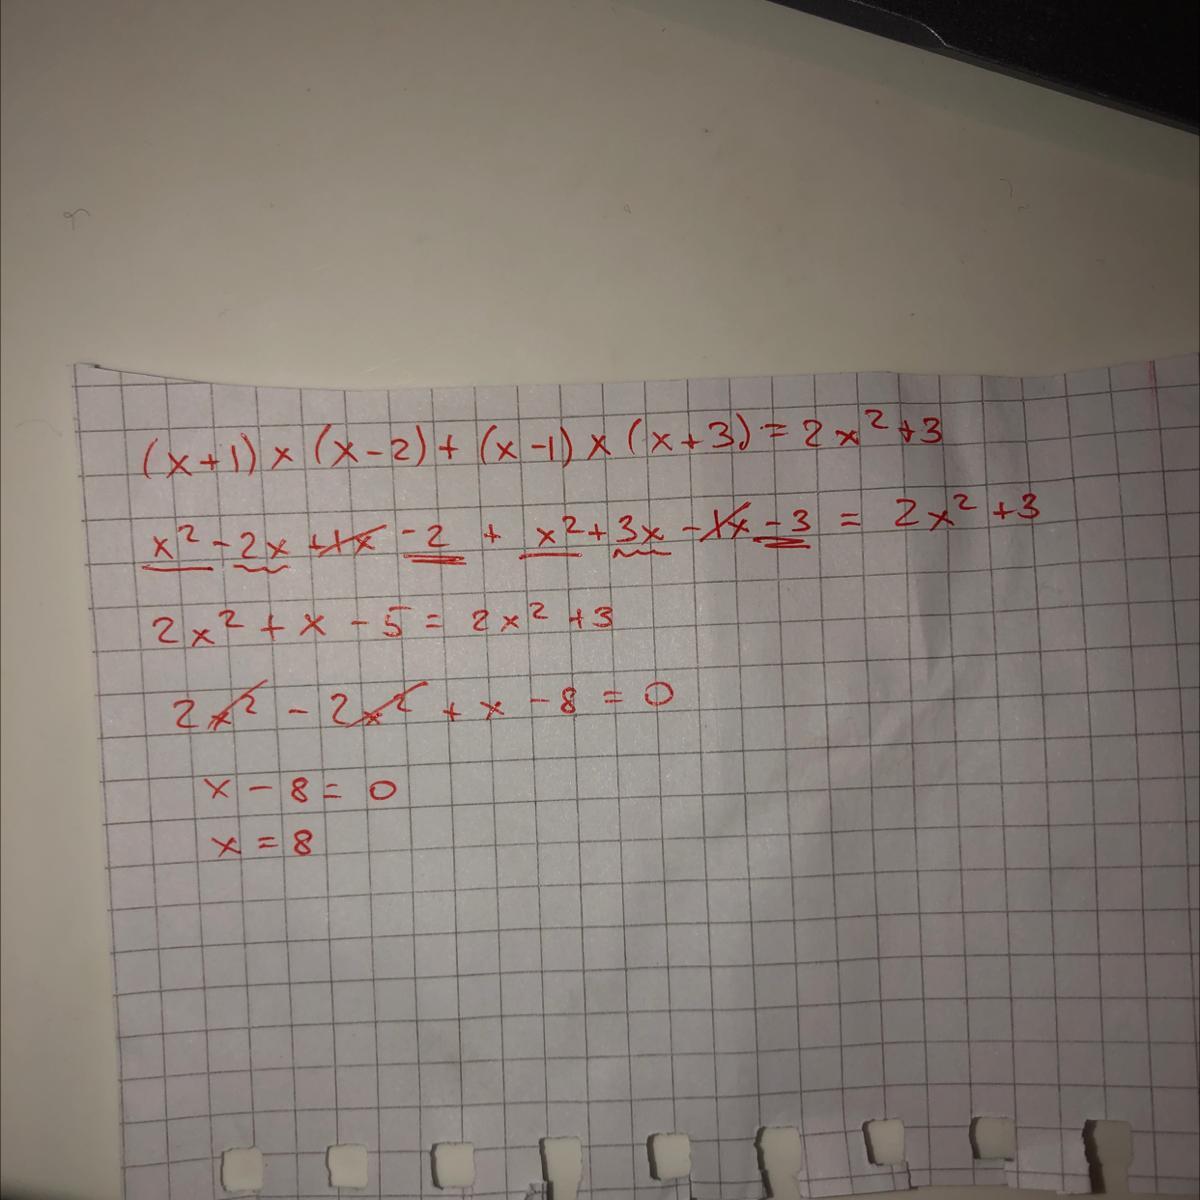 (x+1) × (x-2) + (x-1) × (x+3) = 2x² +3
x² - 2x +1x -2 + x² + 3x - 1x - 3 = 2x² +3
2x² + x - 5 = 2x² +3
2x² - 2x² + x - 8 = 0
x - 8 = 0
x = 8